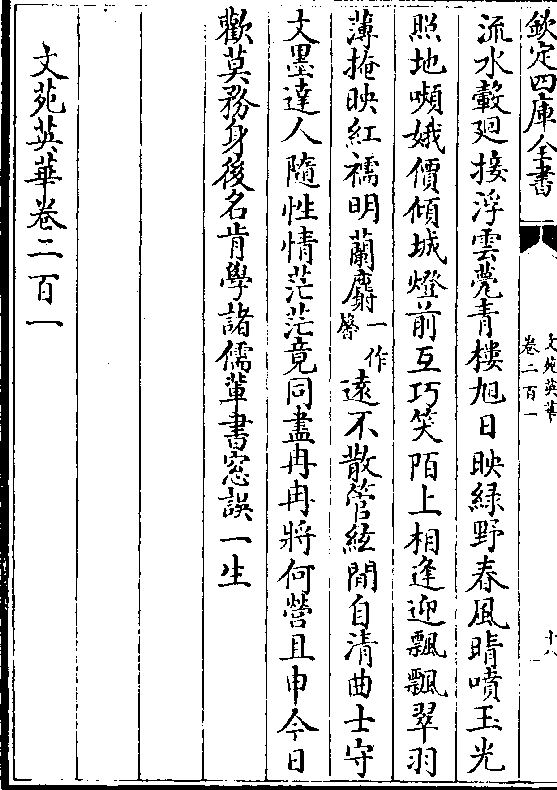 欽定四庫全書
文苑英華
卷二百一
十八
流水轂廻接浮雲甍青樓旭日映綠野春風晴噴玉光
照地嚬娥價傾城燈前互巧笑陌上相逢迎飄飄翠羽
薄掩映紅襦明蘭麝一作馨遠不散管絃間自清曲士守
文墨達人隨性情茫茫竟同盡冉冉將何營且申今日
歡莫務身後名肯學諸儒輩書窓誤一生
文苑英華卷二百一